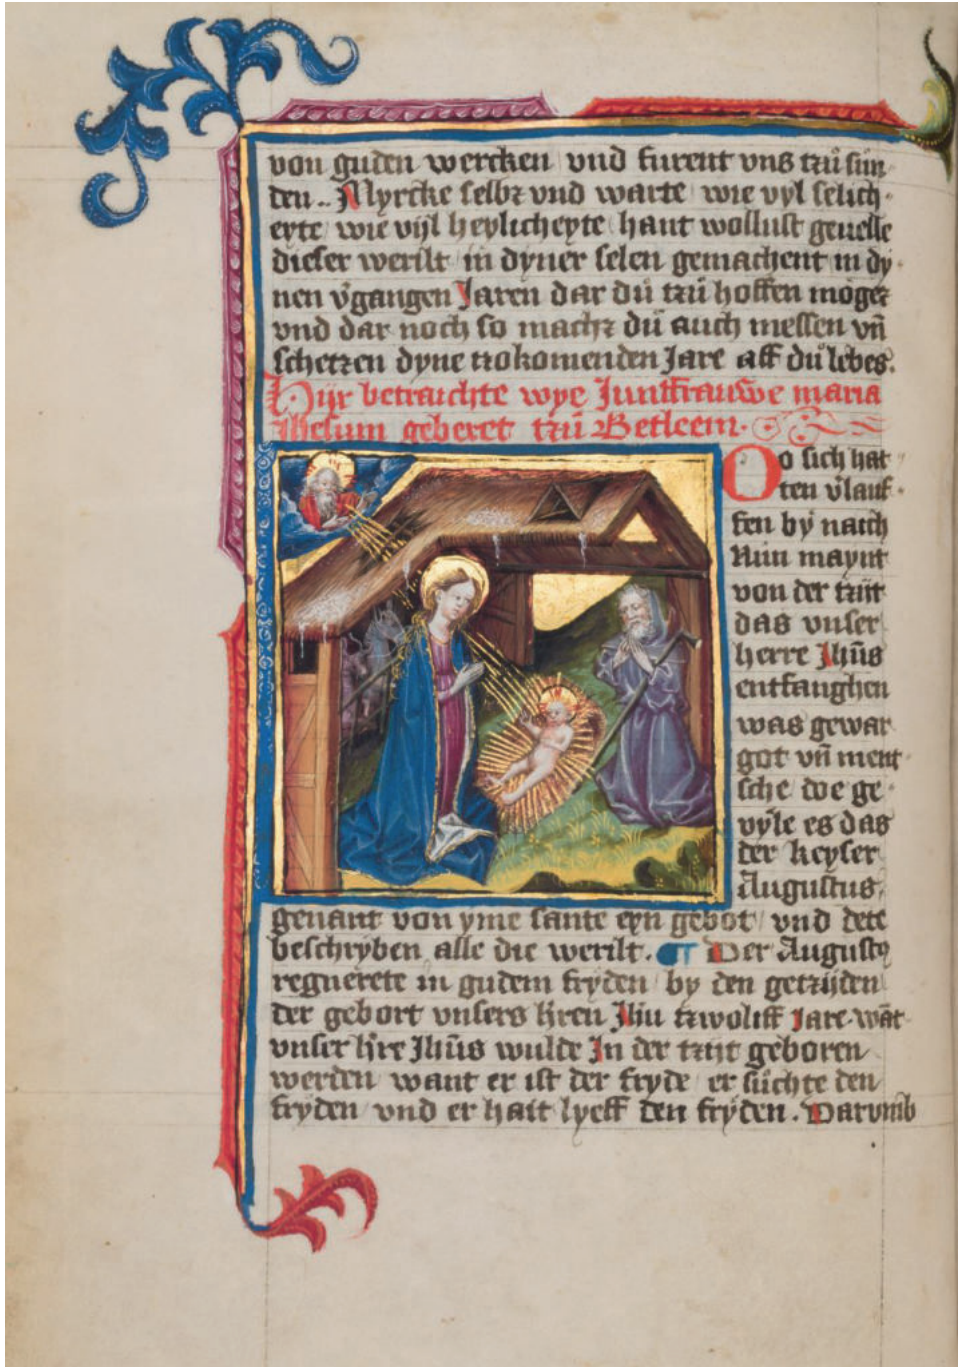 von guden wercken vnd furent vns tzů sün
den.. Myrcke selbz vnd warte wie vyl selich
eyte wie vijl heylicheyte hant wollust geuelle
dieser werilt in dyner selen gemachent in dy
nen v̉gangen Jaren dar dů tzů hoffen mögez
vnd dar noch so machz dů auch messen vn̄
schetzen dyne tzokomenden Jare aff dů lebes.
Hijr betraichte wye Junffrauwe maria
Jhesum geberet tzů Betleem.
Do sich hat
ten v̉lauf
fen by naich
Nün maynt
von der tzijt
das vnser
herre Jhūs
entfanghen
was gewar
got vn̄ ment
sche doe ge
vÿle es das
der keyser
Augustus
genant von yme sante eyn gebot vnd dete
beschryben alle die werilt. ¶ Der Augustꝰ
regnerete in gudem fryden by den getzijden
der gebort vnsers h̄ren Jhū tzwoliff Jare. wāt
vnser h̄re Jhūs wulde In der tzijt geboren
werden want er ist der fryde er sůchte den
fryden vnd er hait lyeff den frÿden. Darvmb